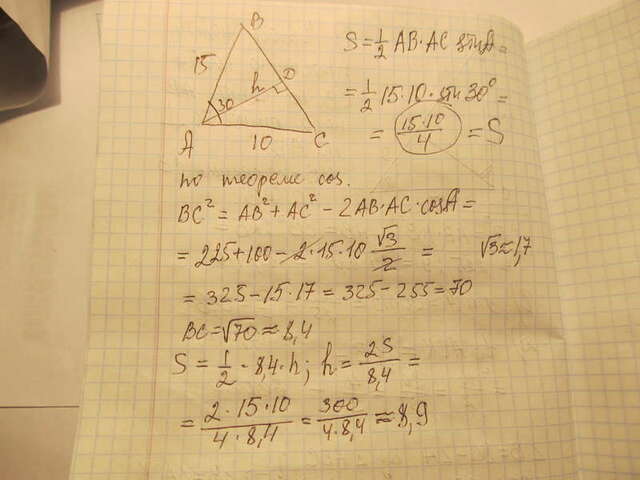 B
15
h
D
30
A
10
C
S = 1/2 AB·AC sin A =
= 1/2 15·10·sin 30° =
= 15·10/4 = S
по теореме cos.
BC² = AB² + AC² - 2AB·AC·cos A =
= 225 + 100 - 2·15·10 √3/2 = √3 ≈ 1,7
= 325 - 15·17 = 325 - 255 = 70
BC = √70 ≈ 8,4
S = 1/2 · 8,4 · h; h = 2S/8,4 =
= 2·15·10/4·8,4 = 300/4·8,4 ≈ 8,9